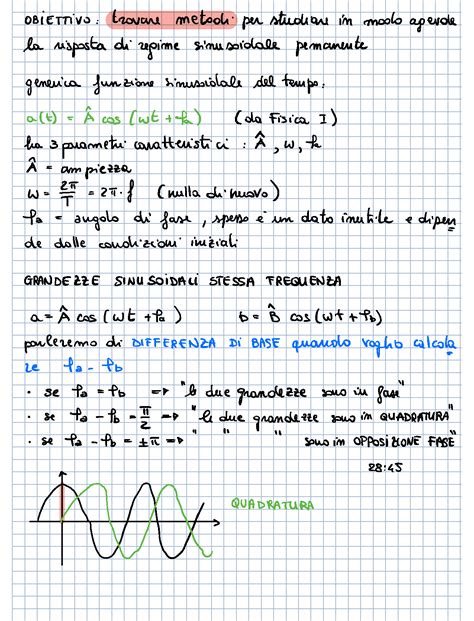 OBIETTIVO: trovare metodi per studiare in modo agevole
la risposta di regime sinusoidale permanente
generica funzione sinusoidale del tempo:
a(t) = Â cos (ωt + φa) (da Fisica I)
ha 3 parametri caratteristici : Â, ω, φa
Â = ampiezza
ω = 2π/T = 2π·f (nulla di nuovo)
φa = angolo di fase, spesso è un dato inutile e dipen
de dalle condizioni iniziali
GRANDEZZE SINUSOIDALI STESSA FREQUENZA
a = Â cos (ωt + φa) b = B̂ cos (ωt + φb)
parleremo di DIFFERENZA DI BASE quando voglio calcola
re φa - φb
· se φa = φb => "le due grandezze sono in fase"
· se φa - φb = π/2 => "le due grandezze sono in QUADRATURA"
· se φa - φb = ±π => " " " sono in OPPOSIZIONE FASE"
28:45
QUADRATURA